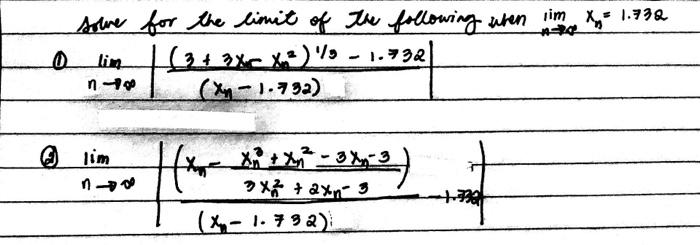 solve for the limit of the following when lim n→∞ xₙ = 1.732
① lim n→∞ | ((3 + 3xₙ - xₙ²)^(1/3) - 1.732) / (xₙ - 1.732) |
② lim n→∞ | ((xₙ - (xₙ³ + xₙ² - 3xₙ - 3) / (3xₙ² + 2xₙ - 3)) - 1.732) / (xₙ - 1.732) |